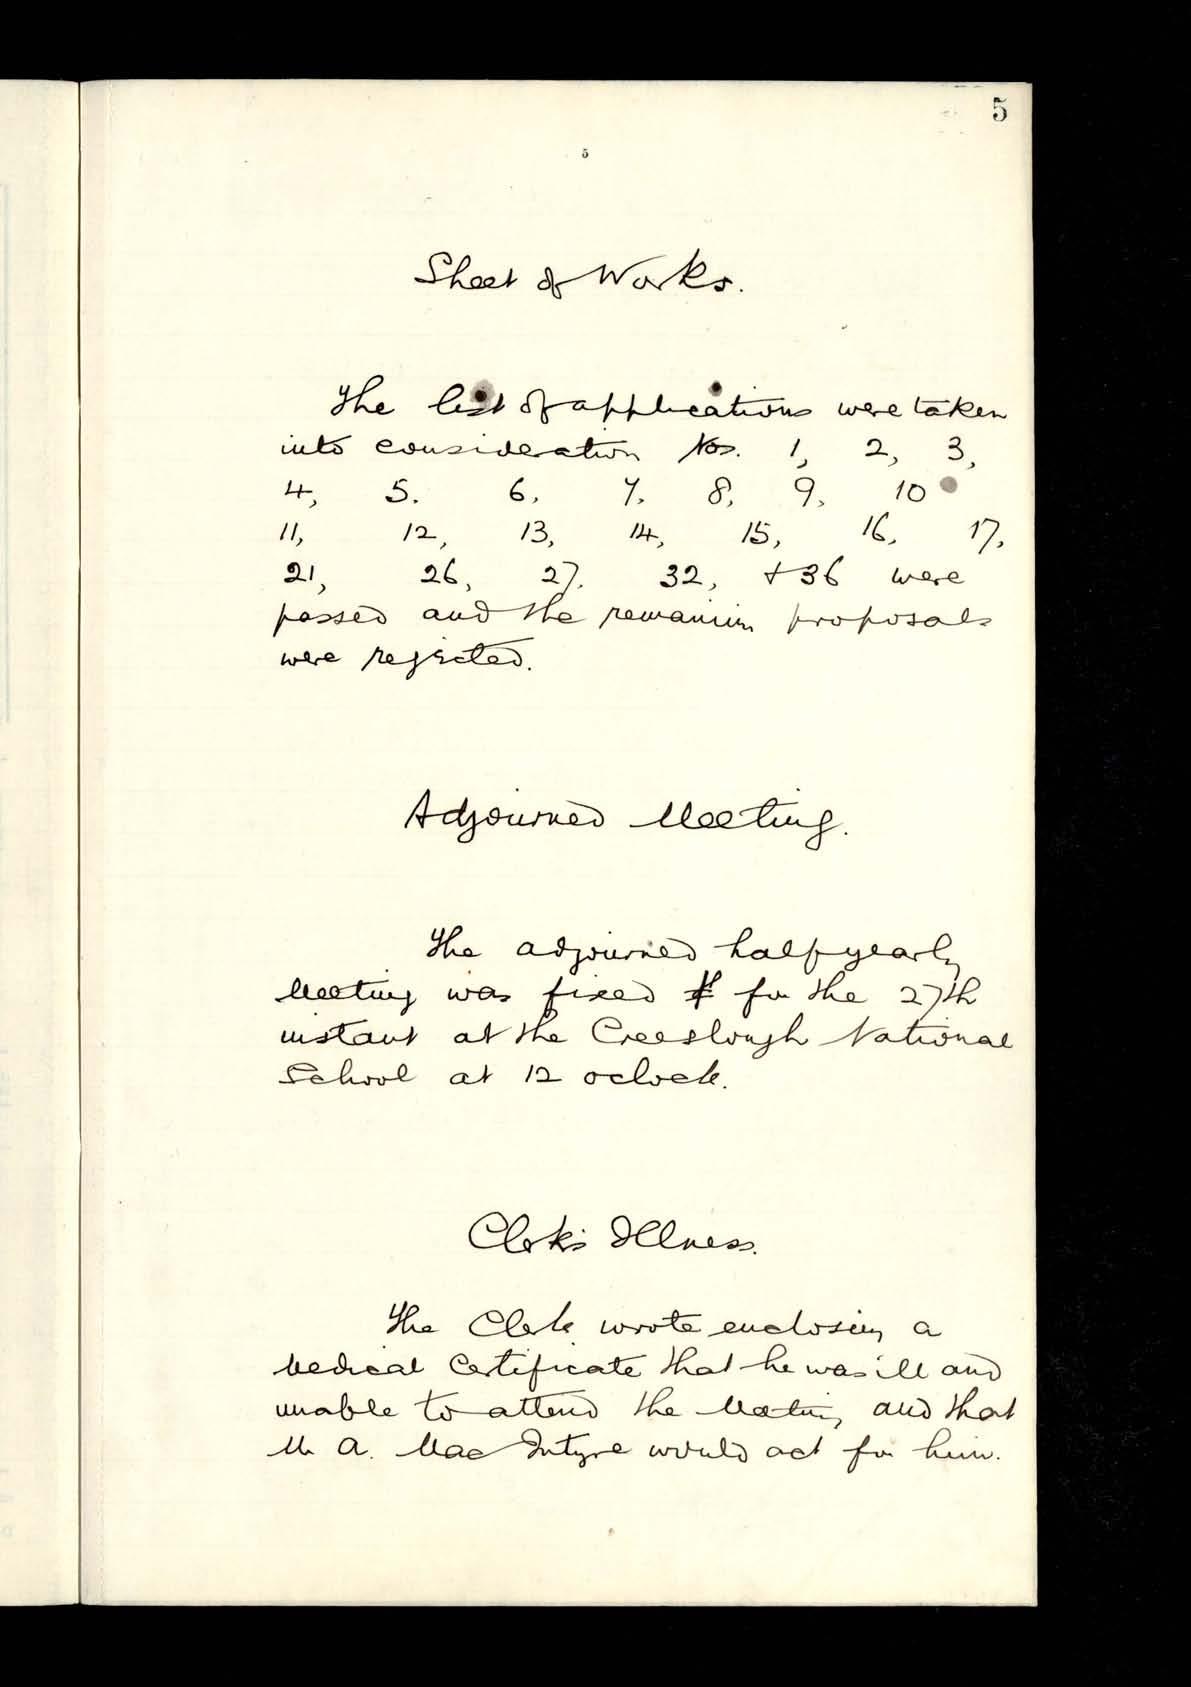 5
5
Sheet of Works.
The list of applications were taken
into consideration Nos. 1, 2, 3,
4, 5. 6, 7, 8, 9, 10
11, 12, 13, 14, 15, 16, 17,
21, 26, 27. 32, + 36 were
passed and the remaining proposals
were rejected.
Adjourned Meeting.
The adjourned half yearly
Meeting was fixed for the 27th
instant at the Creeslough National
School at 12 oclock.
Clerk's Illness.
The Clerk wrote enclosing a
Medical Certificate that he was ill and
unable to attend the Meeting and that
Mr A. Mac Intyre would act for him.